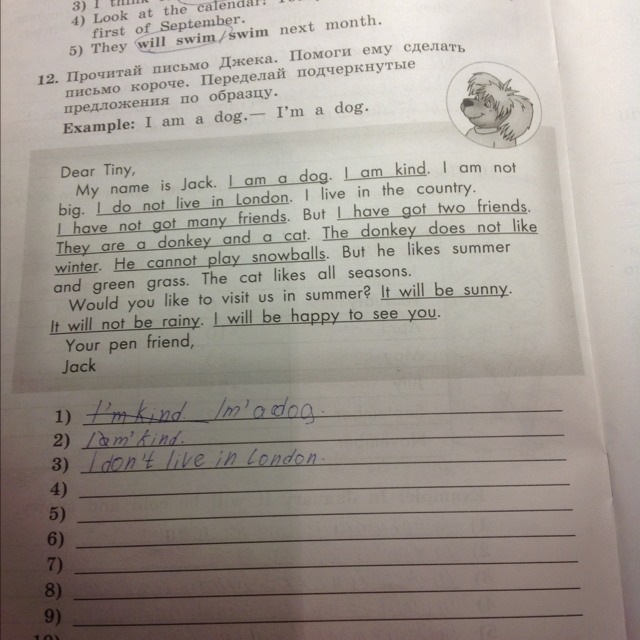 3) I think
4) Look at the calendar!
first of September.
5) They will swim/swim next month.
12. Прочитай письмо Джека. Помоги ему сделать
письмо короче. Переделай подчеркнутые
предложения по образцу.
Example: I am a dog.— I'm a dog.
Dear Tiny,
My name is Jack. I am a dog. I am kind. I am not
big. I do not live in London. I live in the country.
I have not got many friends. But I have got two friends.
They are a donkey and a cat. The donkey does not like
winter. He cannot play snowballs. But he likes summer
and green grass. The cat likes all seasons.
Would you like to visit us in summer? It will be sunny.
It will not be rainy. I will be happy to see you.
Your pen friend,
Jack
1) I'm kind. Im' a dog.
2) I am' kind.
3) I don't live in London.
4)
5)
6)
7)
8)
9)